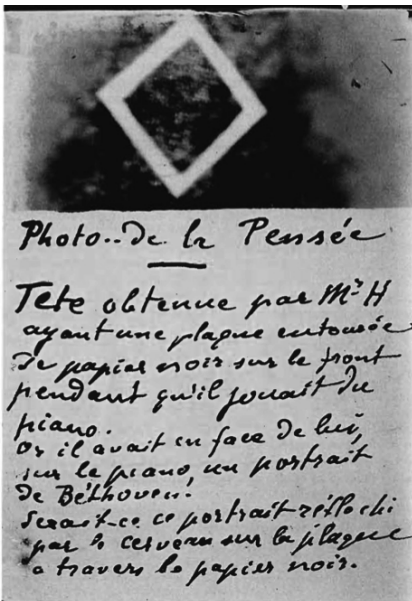 Photo..de la Pensée
Tête obtenue par Mr H
ayant une plaque entourée
de papier noir sur le front
pendant qu'il jouait du
piano.
Or il avait en face de lui,
sur le piano, un portrait
de Béthoven.
Serait-ce ce portrait réfléchi
par le cerveau sur la plaque
a travers le papier noir.